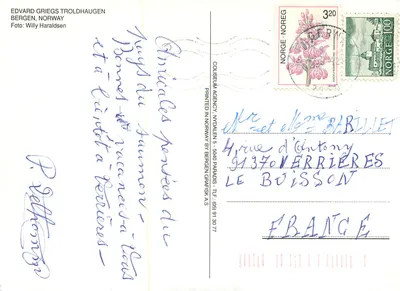 EDVARD GRIEGS TROLDHAUGEN
BERGEN, NORWAY
Foto: Willy Haraldsen
Amicales pensées du
pays du saumon -
Bonnes vacances à vous
et à bientôt à Verrières -
COLISEUM AGENCY, NYDALEN 5 - 5040 PARADIS - TLF. (05) 91 30 77
PRINTED IN NORWAY BY BERGEN GRAFISK A.S
NORGE · NOREG
3.20
NORGE 100
Mr et Mme BARILLET
4, rue d'Antony
91370 VERRIÈRES
LE BUISSON
FRANCE